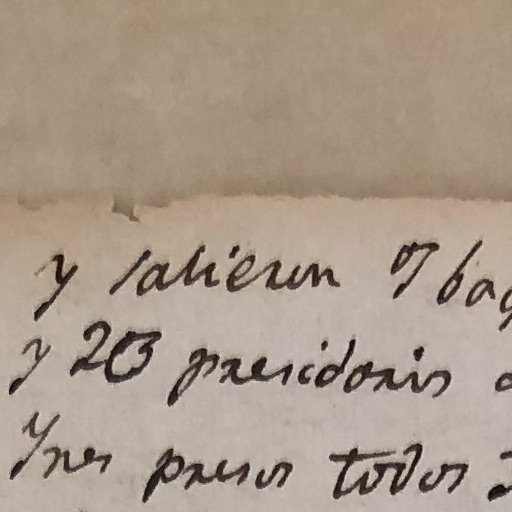 y salieron 7 ba
y 20 presidarios
Ynes presos todos